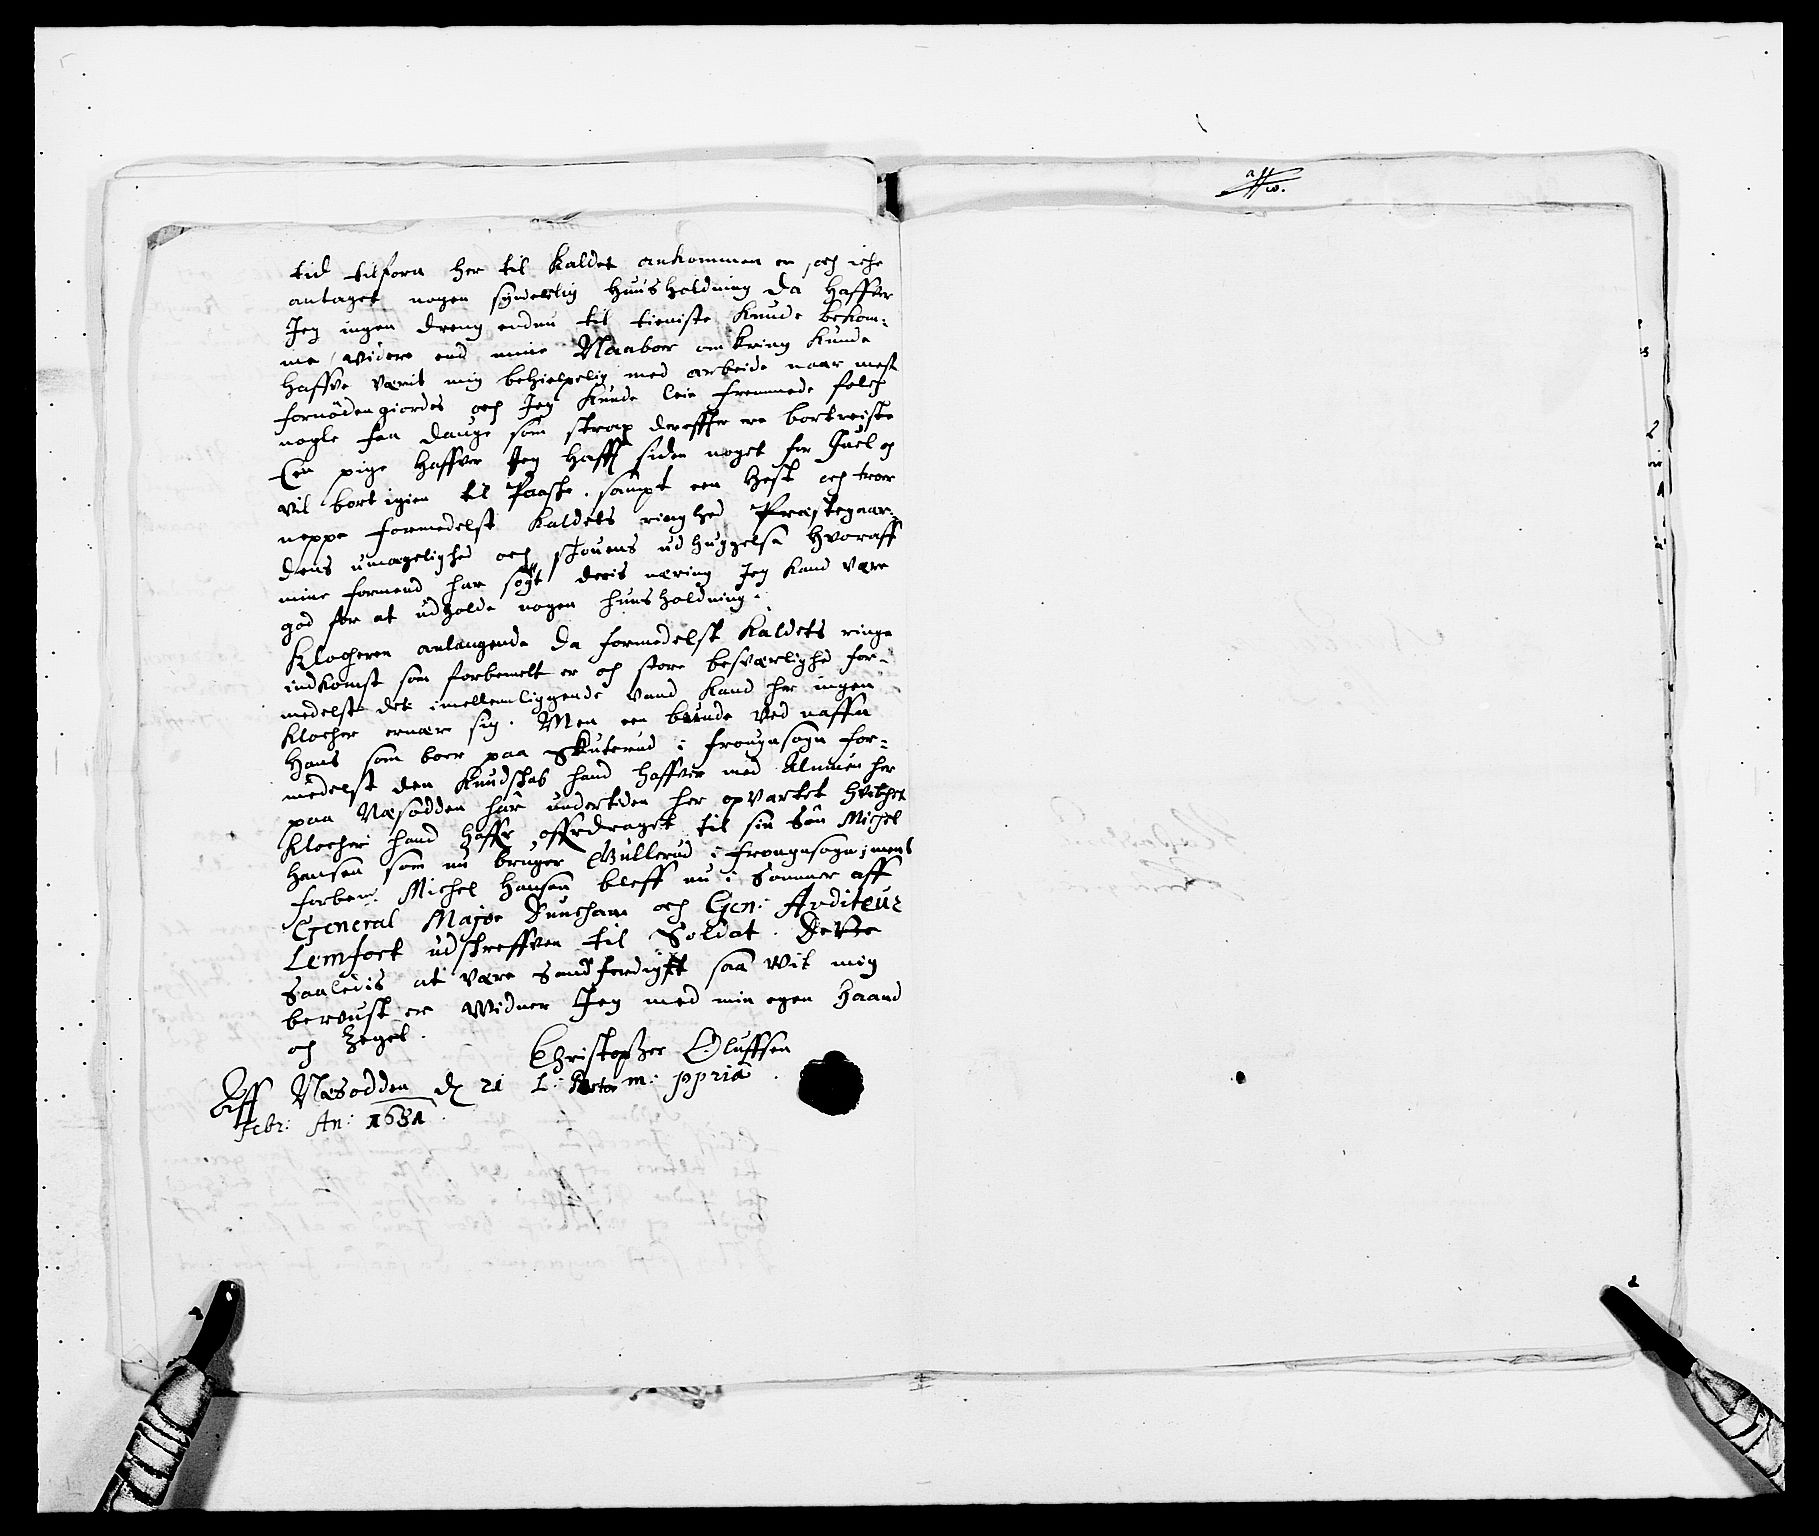 tid tilforn her til Kaldet ankommen er, och iche
antaget nogen synderlig Huusholdning da Haffver
Jeg ingen dreng endnu til tieniste Kunde bekom-
me, widere end mine Naaboer omkring Kunde
Haffve værit mig behielpelig med arbeide naar mest
fornöden giordes och Jeg Kunde leie fremmede folch
nogle faa dauge som strax dereffter ere bortreiste
Een pige Haffver Jeg Hafft siden noget for Juel og
vil bort igien til Paaske. sampt een Hest och troer
neppe formedelst Kaldets ringhed Præstegaar-
dens umagelighed och skouens udhuggelse Hvoraff
mine formend har sögt deris næring Jeg Kand være
god for at udholde nogen huusholdning.
Klocheren anlangende da formedelst Kaldets ringe
indkomst som forbemelt er och store besværlighed for-
medelst det imellemliggende vand kand her ingen
Klocher ernære sig. Men een bunde ved naffn
Hans som boer paa Skuterud i frougnsogn for-
medelst den Kundskab hand haffver med Almuen her
paa Næsodden har undertiden her opvartet hvilchet
Klocheri hand Haffr offrdraget til sin Sön Michel
Hansen som nu bruger Gullerud i frougnsogn; mens
forben: Michel Hansen bleff nu i Sommer aff
General Major og Gen: Auditeur
Lemfort udskreffven til Soldat. Dette
Saaledis at være Sandfærdigt saa wit mig
bevust er Widner Jeg med min egen Haand
och Zegel.
Christopher Oluffsen
Aff Næsodden d 21 L: Pastor m: ppria
Febr: An: 1681.